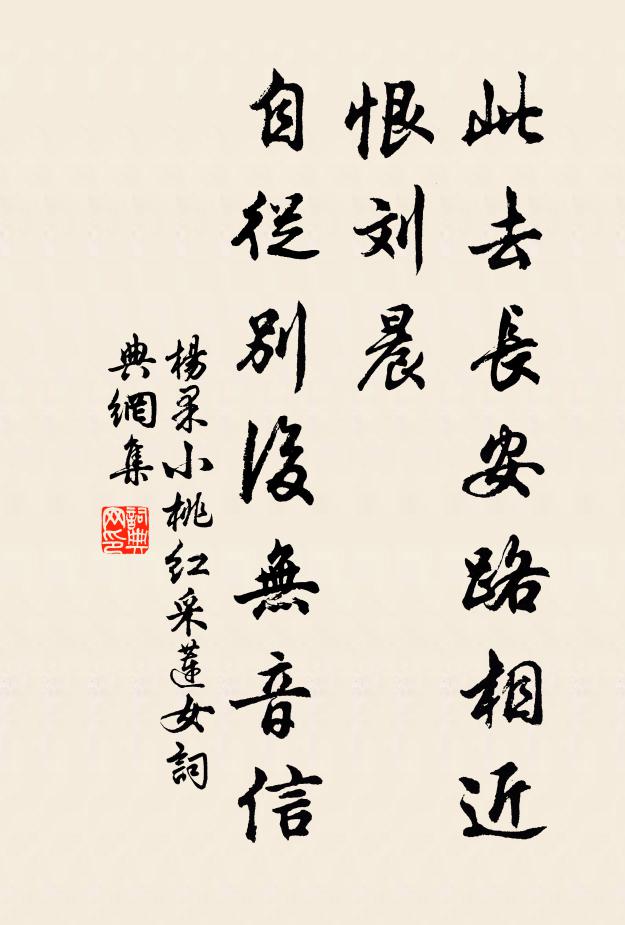 此去長安路相近
恨刘晨
自從別後無音信
楊果小桃紅采蓮女詞
典網集
詞典
网印